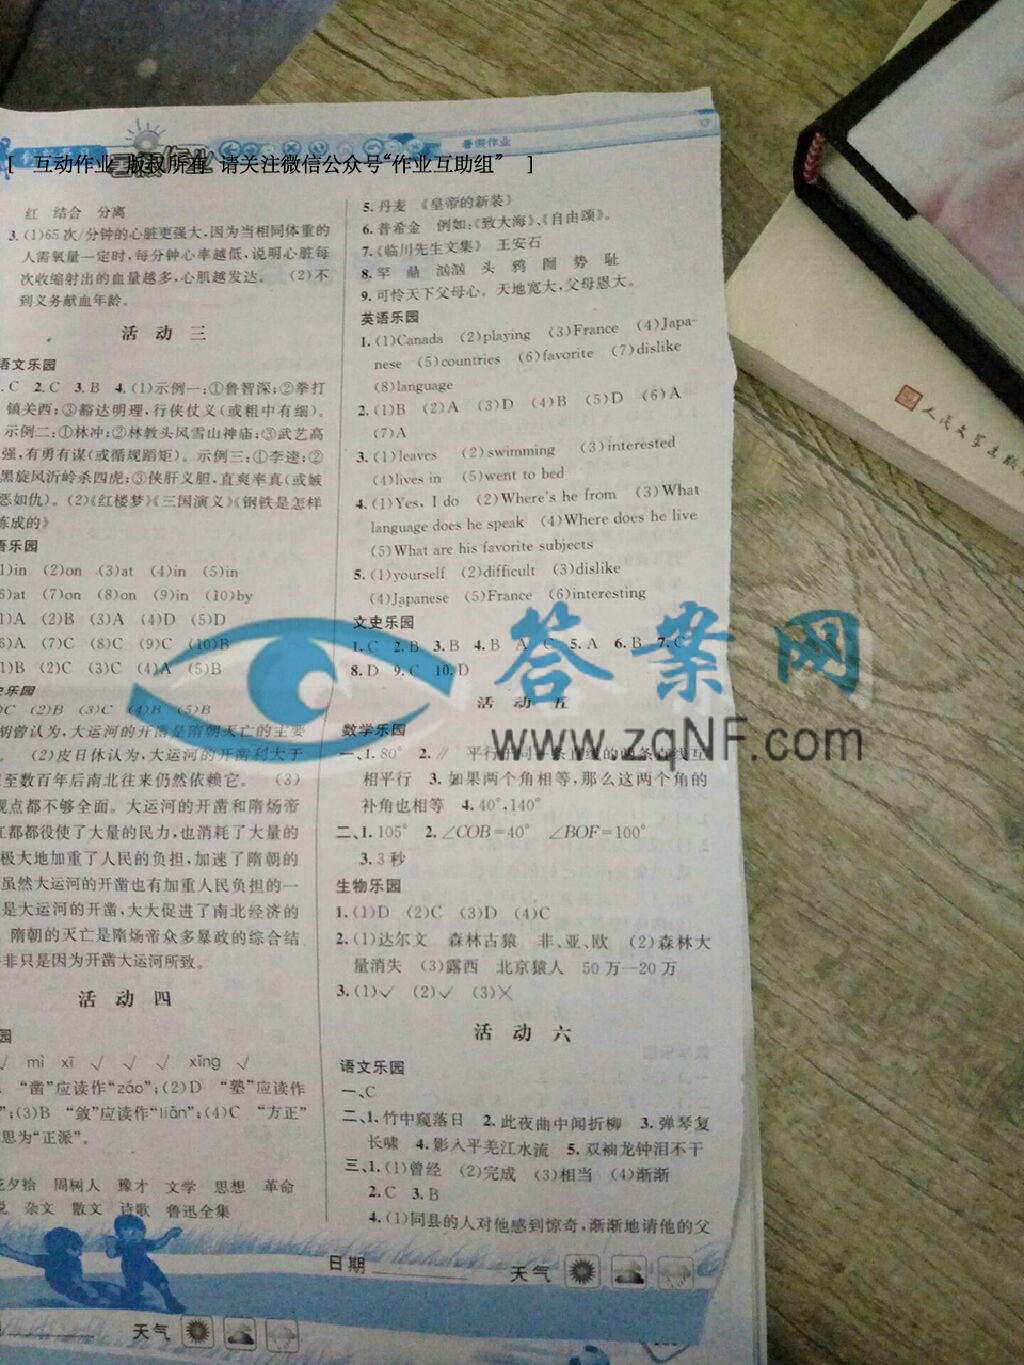 [ 互动作业 版权所有 请关注微信公众号“作业互助组” ]
暑假作业
红 结合 分离
3. (1)65次/分钟的心脏更强大,因为当相同体重的
人需氧量一定时,每分钟心率越低,说明心脏每
次收缩射出的血量越多,心肌越发达。 (2)不
到义务献血年龄。
活 动 三
语文乐园
C 2. C 3. B 4. (1)示例一:①鲁智深;②拳打
镇关西;③豁达明理,行侠仗义(或粗中有细)。
示例二:①林冲;②林教头风雪山神庙;③武艺高
强,有勇有谋(或循规蹈矩)。示例三:①李逵;②
黑旋风沂岭杀四虎;③侠肝义胆,直爽率真(或嫉
恶如仇)。(2)《红楼梦》《三国演义》《钢铁是怎样
炼成的》
语乐园
1)in (2)on (3)at (4)in (5)in
6)at (7)on (8)on (9)in (10)by
1)A (2)B (3)A (4)D (5)D
6)A (7)C (8)C (9)C (10)B
1)B (2)C (3)C (4)A (5)B
史乐园
)C (2)B (3)C (4)B (5)B
胡曾认为,大运河的开凿是隋朝灭亡的主要
(2)皮日休认为,大运河的开凿利大于
至数百年后南北往来仍然依赖它。 (3)
观点都不够全面。大运河的开凿和隋炀帝
江都都役使了大量的民力,也消耗了大量的
极大地加重了人民的负担,加速了隋朝的
虽然大运河的开凿也有加重人民负担的一
是大运河的开凿,大大促进了南北经济的
隋朝的灭亡是隋炀帝众多暴政的综合结
非只是因为开凿大运河所致。
活 动 四
园
√ mì xī √ √ √ xīng √
“凿”应读作“záo”;(2)D “塾”应读作
”;(3)B “敛”应读作“liǎn”;(4)C “方正”
思为“正派”。
花夕拾 周树人 豫才 文学 思想 革命
说 杂文 散文 诗歌 鲁迅全集
5. 丹麦 《皇帝的新装》
6. 普希金 例如:《致大海》、《自由颂》。
7.《临川先生文集》 王安石
8. 罕 鼎 汹汹 头 鸦 圈 势 耻
9. 可怜天下父母心。天地宽大,父母恩大。
英语乐园
1. (1)Canada (2)playing (3)France (4)Japa-
nese (5)countries (6)favorite (7)dislike
(8)language
2. (1)B (2)A (3)D (4)B (5)D (6)A
(7)A
3. (1)leaves (2)swimming (3)interested
(4)lives in (5)went to bed
4. (1)Yes, I do (2)Where's he from (3)What
language does he speak (4)Where does he live
(5)What are his favorite subjects
5. (1)yourself (2)difficult (3)dislike
(4)Japanese (5)France (6)interesting
文史乐园
1. C 2. B 3. B 4. B A C 5. A 6. B 7. C
8. D 9. C 10. D
活 动 五
数学乐园
一、1. 80° 2. ∥ 平行于同一条直线的两条直线互
相平行 3. 如果两个角相等,那么这两个角的
补角也相等 4. 40°,140°
二、1. 105° 2. ∠COB=40° ∠BOF=100°
3. 3秒
生物乐园
1. (1)D (2)C (3)D (4)C
2. (1)达尔文 森林古猿 非、亚、欧 (2)森林大
量消失 (3)露西 北京猿人 50万—20万
3. (1)√ (2)√ (3)×
活 动 六
语文乐园
一、C
二、1. 竹中窥落日 2. 此夜曲中闻折柳 3. 弹琴复
长啸 4. 影入平羌江水流 5. 双袖龙钟泪不干
三、1. (1)曾经 (2)完成 (3)相当 (4)渐渐
2. C 3. B
4. (1)同县的人对他感到惊奇,渐渐地请他的父
日期 天气
天气
答案网
www.zqNF.com